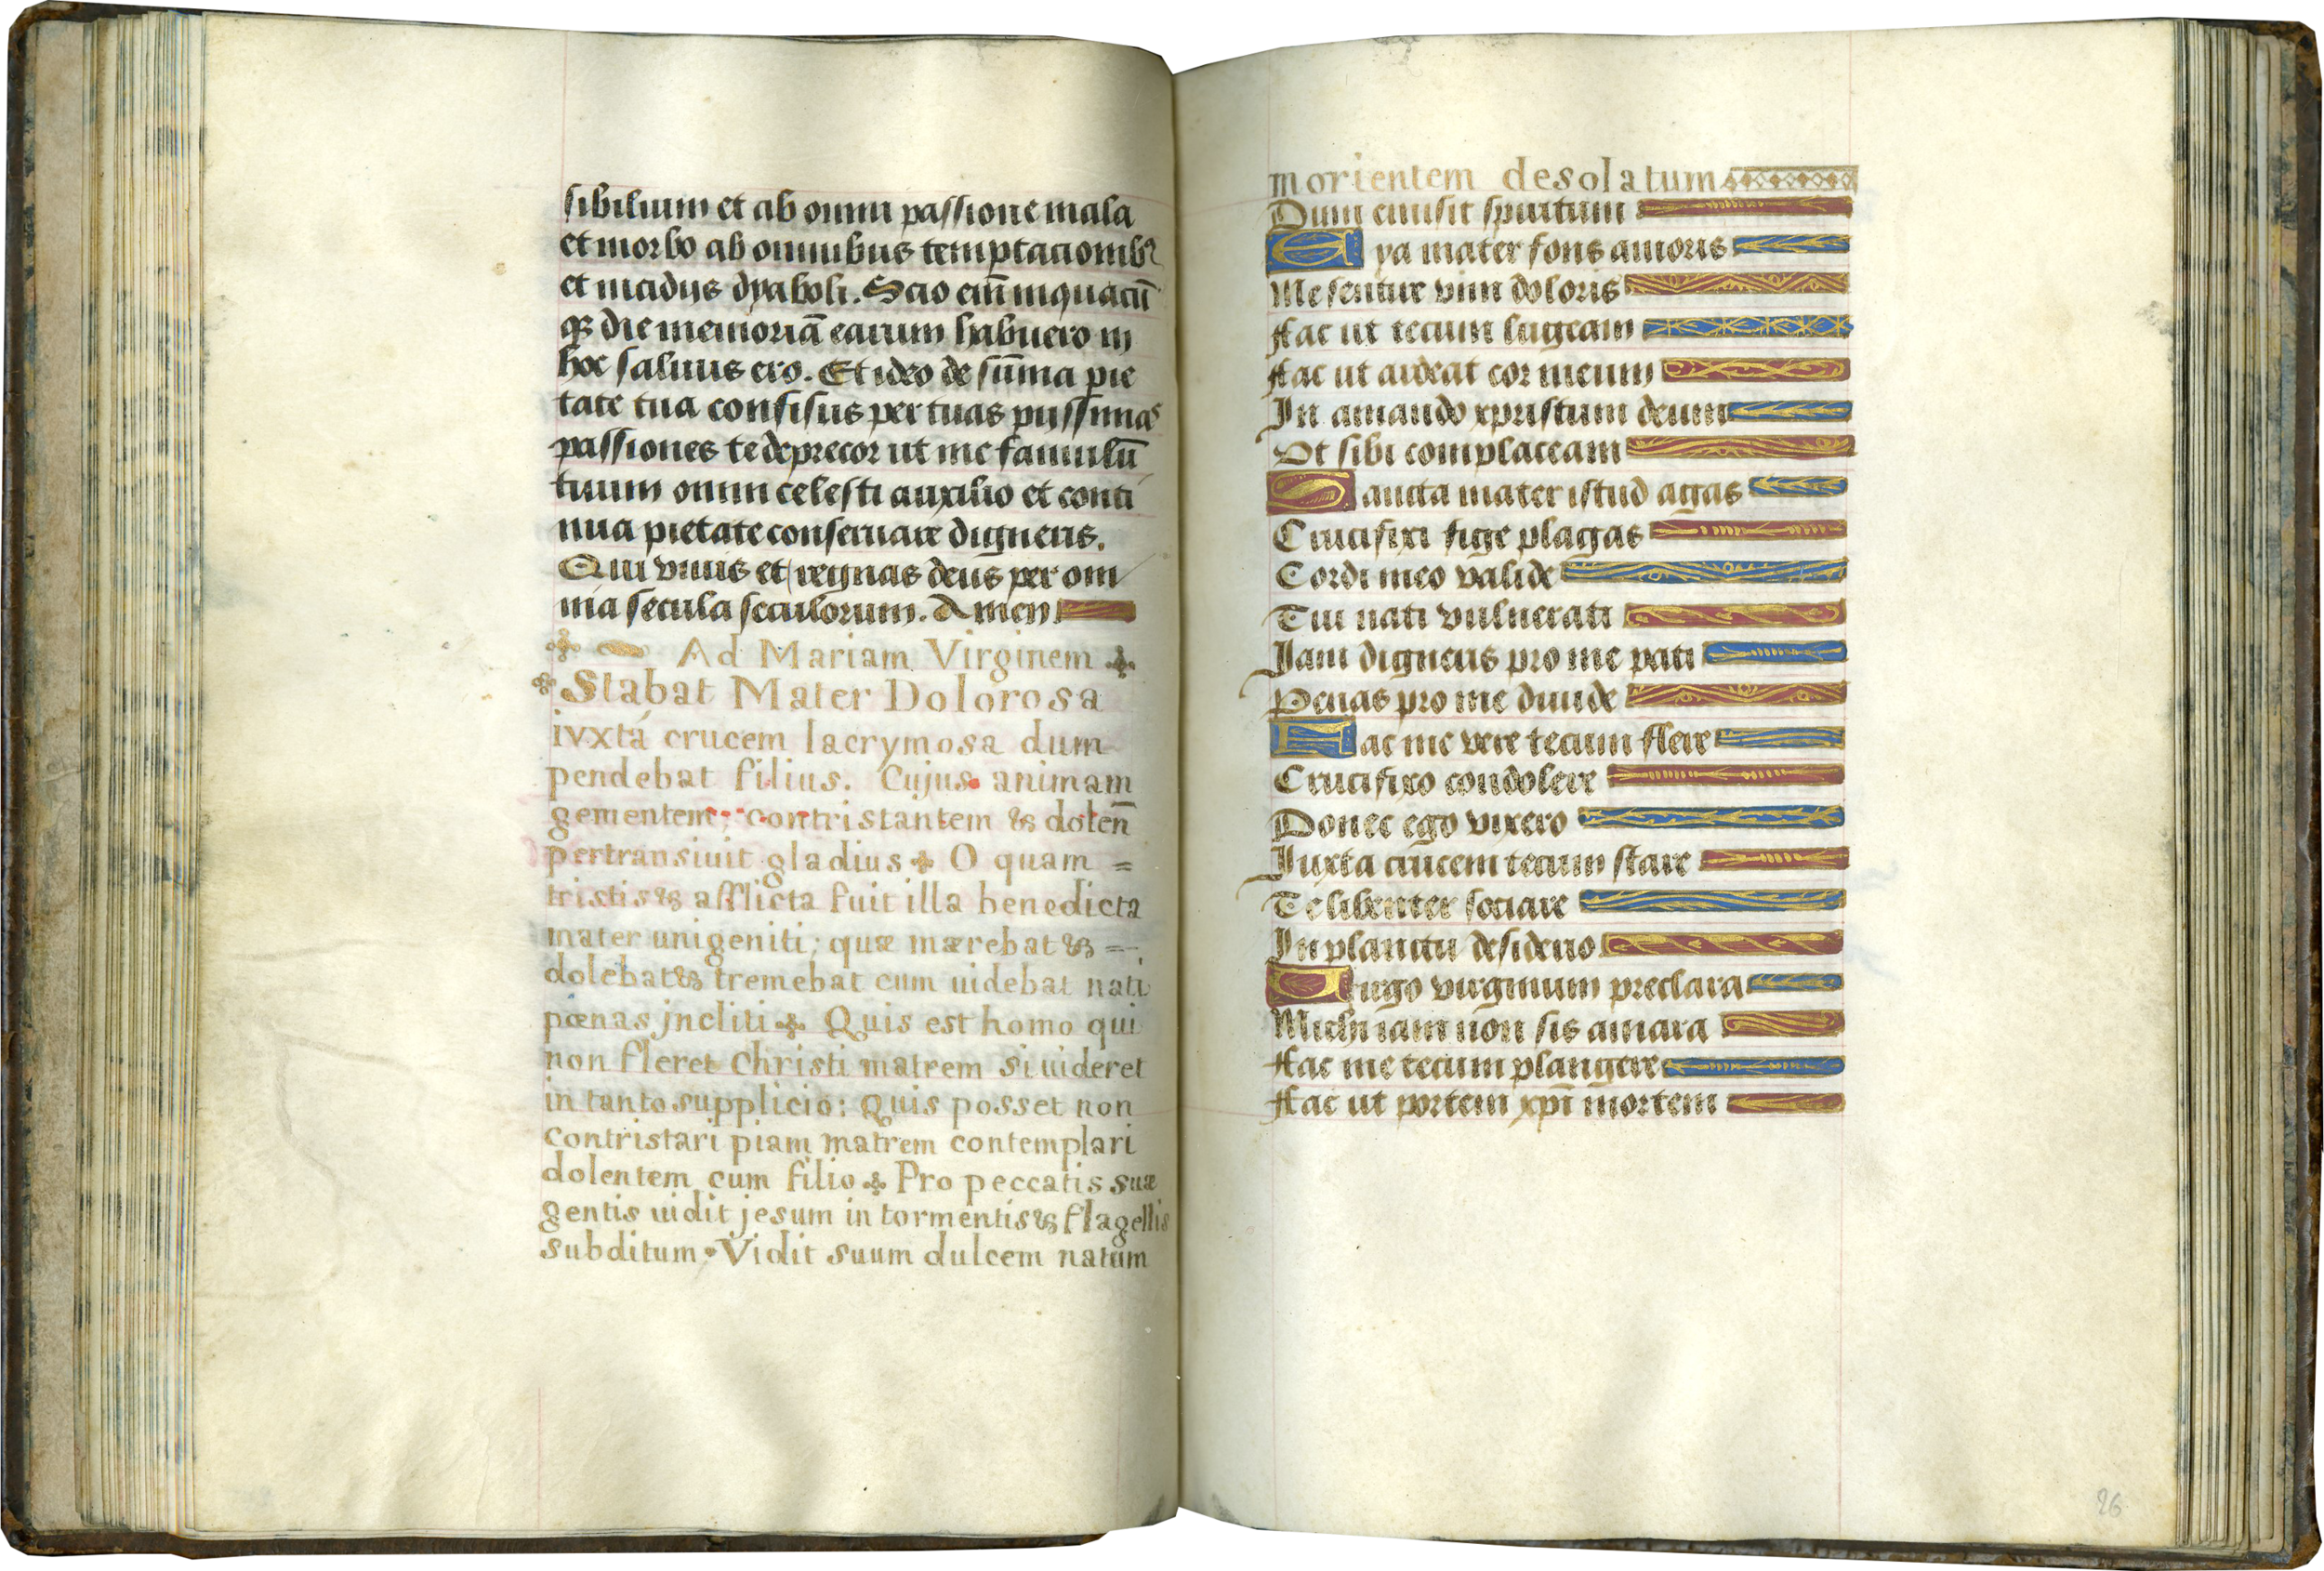 sibilium et ab omni passione mala
et morbo ab omnibus temptacionibꝰ
et insidiis dyaboli. Scio em̄ in quacū
qꝫ die memoriā earum habuero in
hoc saluus ero. Et ideo de sūma pie
tate tua confisus per tuas piissimas
passiones te deprecor ut me famulū
tuum omni celesti auxilio et conti
nua pietate conseruare digneris.
Qui viuis et regnas deus per om
nia secula seculorum. Amen
Ad Mariam Virginem
Stabat Mater Dolorosa
ivxtá crucem lacrymosa dum
pendebat filius. Cujus animam
gementem, contristantem & dolen̄
pertransiuit gladius O quam =
tristis & afflicta fuit illa benedicta
mater unigeniti; quæ mærebat & =
dolebat & tremebat cum uidebat nati
pœnas jncliti Quis est homo qui
non fleret Christi matrem si uideret
in tanto supplicio: Quis posset non
contristari piam matrem contemplari
dolentem cum filio Pro peccatis suæ
gentis uidit jesum in tormentis & flagellis
subditum • Vidit suum dulcem natum
morientem desolatum
Dum emisit spiritum
Eya mater fons amoris
Me sentire vim doloris
Fac ut tecum lugeam
Fac ut ardeat cor meum
In amando xpristum deum
Ut sibi complaceam
Sancta mater istud agas
Crucifixi fige plagas
Cordi meo valide
Tui nati vulnerati
Jam digneris pro me pati
Penas pro me diuide
Fac me vere tecum flere
Crucifixo condolere
Donec ego vixero
Iuxta crucem tecum stare
Te libenter sociare
In planctu desiderio
Uirgo virginum preclara
Michi iam non sis amara
Fac me tecum plangere
Fac ut portem xp̄i mortem
26